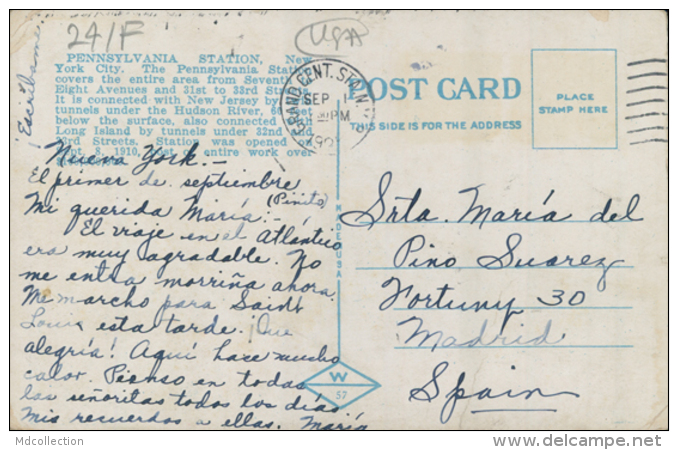 24/F
USA
Escríbame
PENNSYLVANIA STATION, New
York City. The Pennsylvania Station
covers the entire area from Seventh
Eight Avenues and 31st to 33rd Streets.
It is connected with New Jersey by
tunnels under the Hudson River, 60 feet
below the surface, also connected
Long Island by tunnels under 32nd and
33rd Streets. Station was opened
Sept. 8, 1910. Cost of entire work over
GRAND CENT. STA. N.Y.
SEP 1
PM
POST CARD
THIS SIDE IS FOR THE ADDRESS
PLACE
STAMP HERE
Nueva York.—
El primer de septiembre
Mi querida María:— (Pinita)
El viaje en el Atlántico
era muy agradable. No
me entra morriña ahora.
Me marcho para Saint
Louis esta tarde. ¡Que
alegría! Aquí hace mucho
calor. Pienso en todas
las señoritas todos los días.
Mis recuerdos a ellas. María
MADE IN USA
W
57
Srta. María del
Pino Suarez
Fortuny 30
Madrid
Spain
Mdcollection
www.delcampe.net